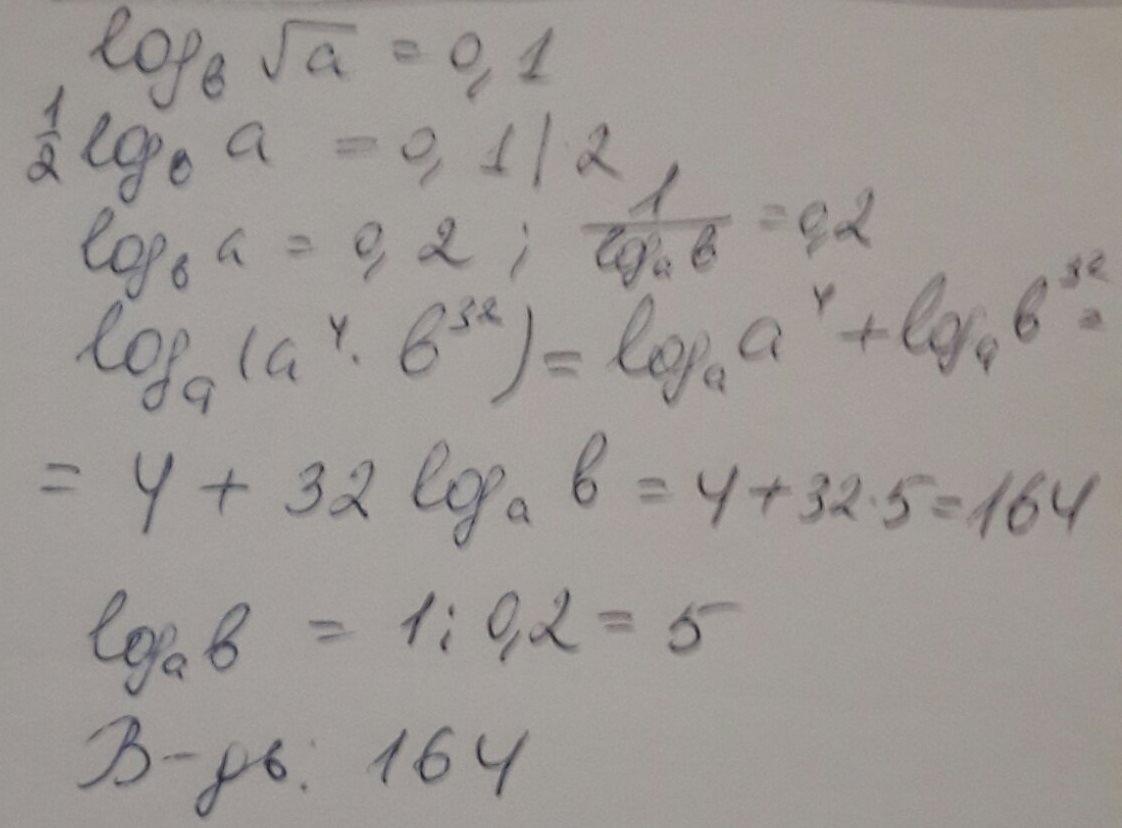 log_в √a = 0,1
1/2 log_в a = 0,1 | · 2
log_в a = 0,2 ; 1/(log_a в) = 0,2
log_a (a⁴ · в³²) = log_a a⁴ + log_a в³² =
= 4 + 32 log_a в = 4 + 32 · 5 = 164
log_a в = 1 : 0,2 = 5
В-дь: 164